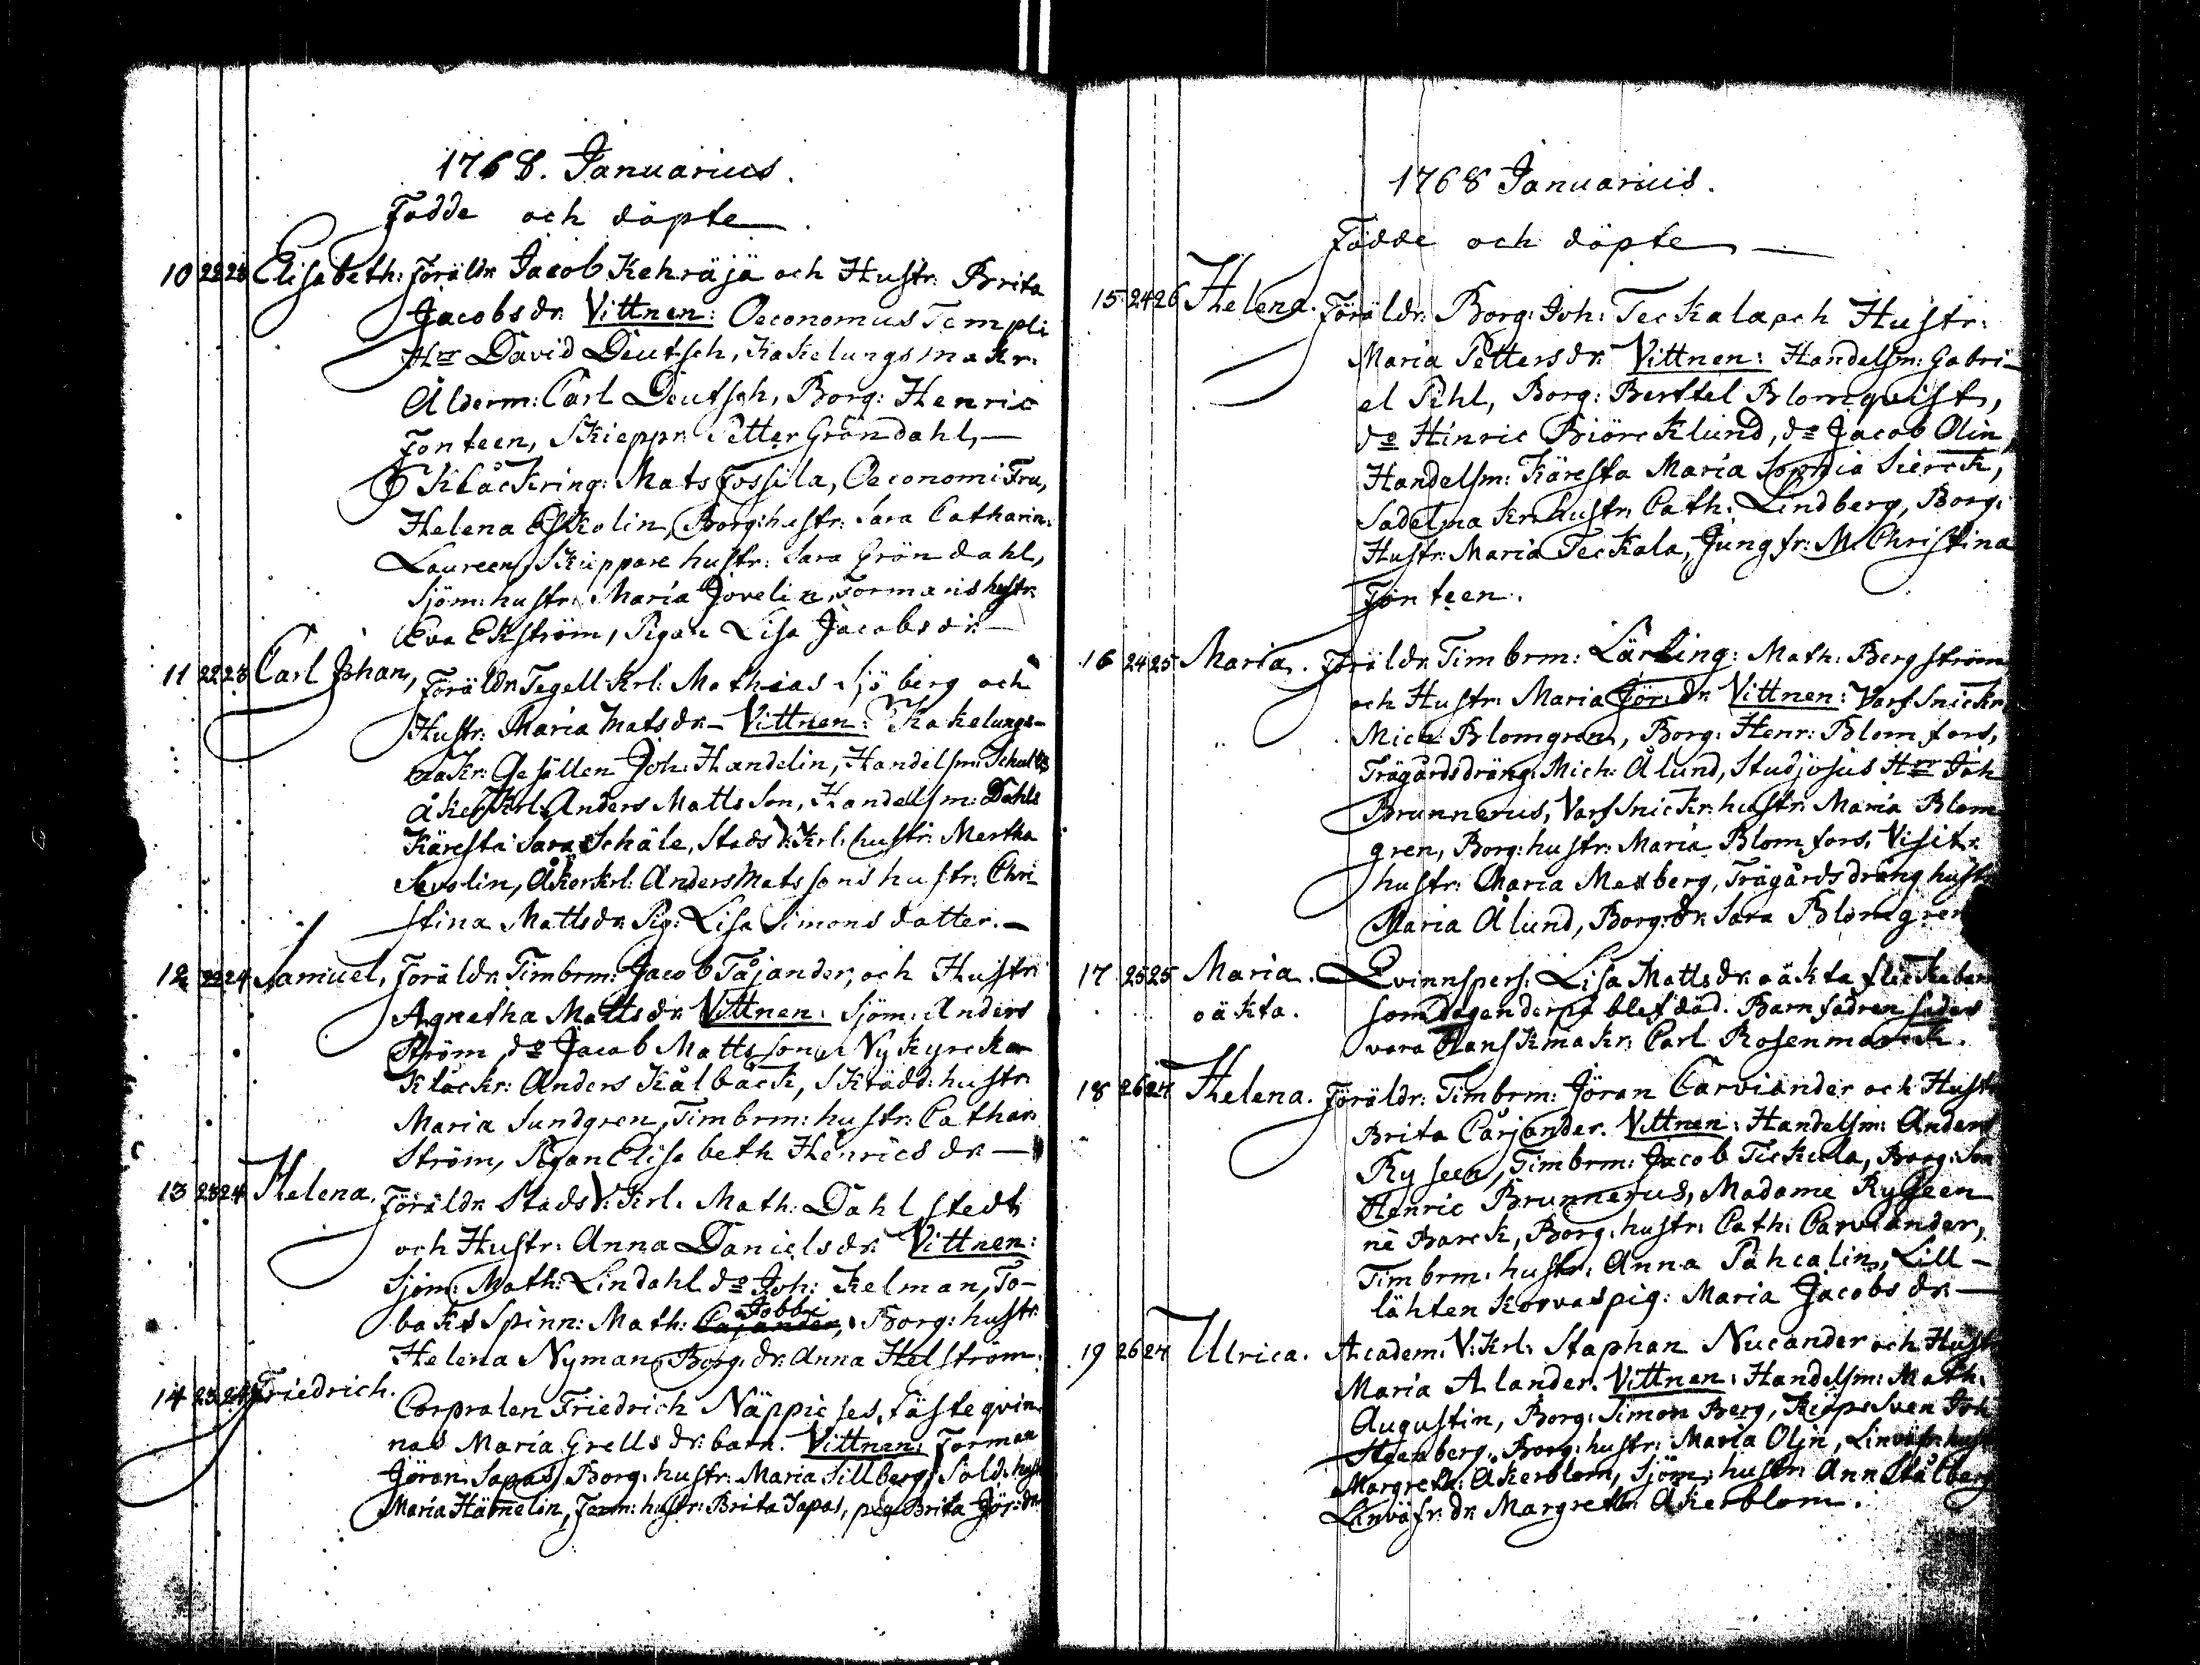 1768. Januarius.
Födde och döpte
10 22 23 Elisabeth. Föräldr. Jacob Kehräjä och Hustr: Brita
Jacobsdr. Vittnen: Oeconomus Templi
Hrr David Deutsch, Kakelungsmakr.
Ålderm: Carl Deutsch, Borg: Henric
Fonteen, Skieppr. Petter Gröndahl,
Klåckring: Mats Fossila, Oeconomi Fru,
Helena Eskolin, Borg: hustr: Sara Catharin:
Laureen, Skieppare hustr: Sara Gröndahl,
Sjöm: hustr. Maria Jovelin, Formans hustr.
Eva Ekström, Pigan Lisa Jacobsdr.
11 22 23 Carl Johan, Föräldr. Tegell Krl: Mathias Sjöberg och
Hustr: Maria Matsdr. Vittnen: Kakelungs-
makr: Gesällen Joh: Handelin, Handelsm: Schultz
Åker Krl: Anders Mattsson, Handelsm: Dahls
Käresta Sara Schäle, Stads V: Krl: hustr: Mertha
Savolin, Åkerkrl: Anders Matssons hustr: Chri-
stina Mattsdr. Pig: Lisa Simonsdotter.
12 22 24 Samuel, Föräldr. Timbrm: Jacob Tåjander, och Hustr:
Agnetha Mattsdr. Vittnen: Sjöm: Anders
Ström, do Jacob Mattsson, Nykyrcka
Klåckr: Anders Kålbäck, Skrädd: hustr:
Maria Sundgren, Timbrm: hustr: Cathar:
Ström, Pigan Elisabeth Henricsdr.
13 23 24 Helena. Föräldr. Stads V: Krl. Math: Dahlstedt
och Hustr: Anna Danielsdr. Vittnen:
Sjöm: Math: Lindahl do Joh: Kelman, To-
baks Spinn: Math: Cajander, Jobbi Borg: hustr.
Helena Nyman, Borg: dr. Anna Helström.
14 23 24 Friedrich. Corpralen Friedrich Näppic ses, fäste qvin-
nas Maria Grellsdr. barn. Vittnen: Forman
Jöran Sapas, Borg: hustr: Maria Sillberg, Sold: hustr
Maria Hämelin, Form: hustr: Brita Sapas, pig Brita Jör: dr.
1768 Januarius.
Födde och döpte
15 24 26 Helena. Föräldr. Borg: Joh: Teckala och Hustr:
Maria Pettersdr. Vittnen: Handelsm: Gabri-
el Pihl, Borg: Berttel Blomqvist,
do Hinric Biörcklund, do Jacob Olin,
Handelsm: Käresta Maria Sophia Sierck,
Sadelmakr. hustr. Cath: Lindberg, Borg:
Hustr: Maria Teckala, Jungfr: M. Christina
Fonteen.
16 24 25 Maria. Föräldr. Timbrm: Lärling: Math: Bergström
och Hustr: Maria Jör: dr. Vittnen: Varf Snickr
Mich: Blomgren, Borg: Henr: Blomfors,
Trägårdsdräng: Mich: Ålund, Studjosus Hrr Joh
Brunnerus, Varf Snickr. hustr: Maria Blom
gren, Borg: hustr: Maria Blomfors, Visitr:
hustr: Maria Maxberg, Trägårdsdräng hustr
Maria Ålund, Borg: dr. Sara Blomgren
17 25 25 Maria. Qvinnspers: Lisa Mattsdr. oäkta flickebarn
oäkta. som dagen derpå blef död. Barnfadren sades
vara Hanskmakr. Carl Rosenmarck.
18 26 27 Helena. Föräldr: Timbrm: Jöran Carviander och Hustr
Brita Cårjander. Vittnen: Handelsm: Anders
Ryseen, Timbrm: Jacob Teckula, Borg: Son
Henric Brunnerus, Madame Rysseen
ne Barck, Borg: hustr: Cath: Carviander,
Timbrm: hustr: Anna Påhcalin, Lill-
lähten Korvas pig: Maria Jacobsdr.
19 26 27 Ulrica. Academ: V: Krl. Staphan Nucander och Hustr
Maria Alander. Vittnen: Handelsm: Math:
Augustin, Borg: Simon Berg, Kiöps Sven Joh
Steenberg, Borg: hustr: Maria Olin, Linväfr. hustr
Margreth: Åkerblom, Sjöm: hustr: Ann Stålberg
Linväfr: dr. Margreth: Åkerblom.